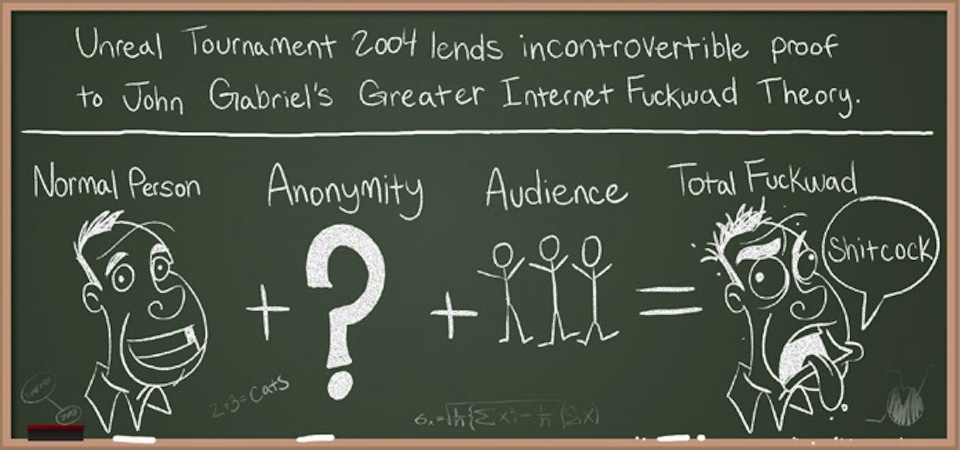 Unreal Tournament 2004 lends incontrovertible proof
to John Gabriel's Greater Internet Fuckwad Theory.
Normal Person
Anonymity
Audience
Total Fuckwad
+
?
+
=
Shitcock
2+3=cats